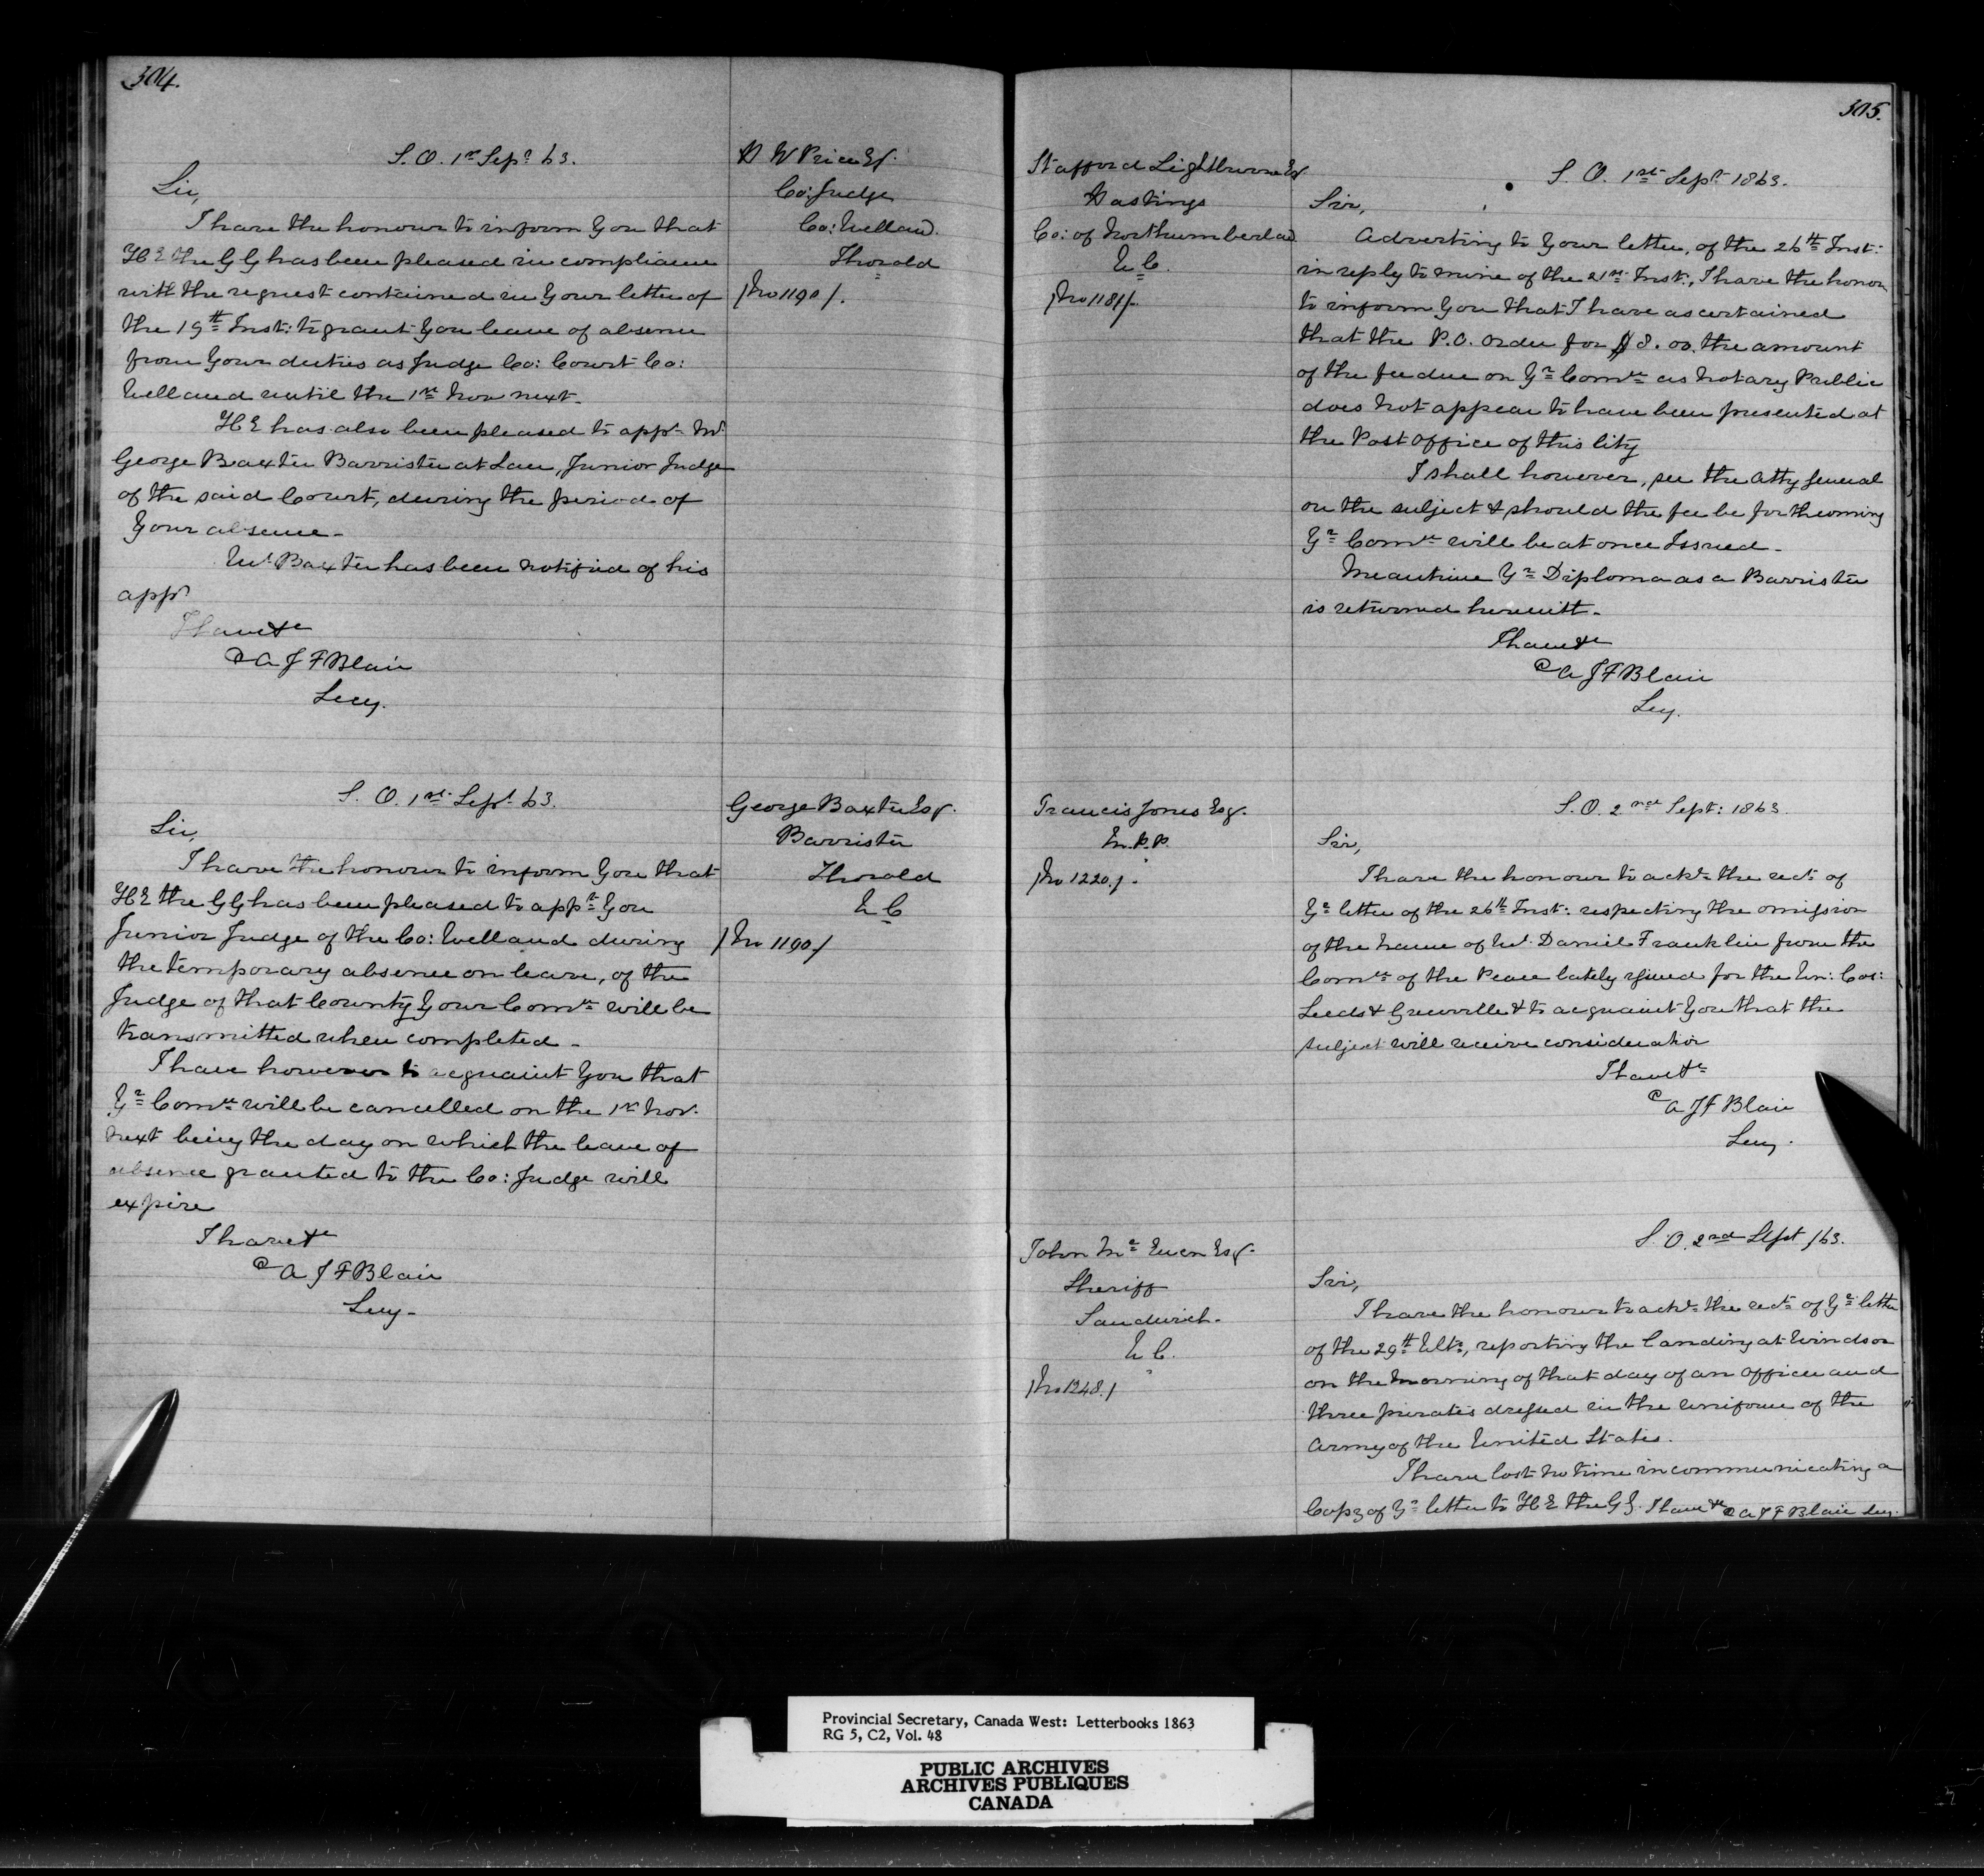 304.
S. O. 1st Sept 63.
Sir,
I have the honour to inform you that
H E the G G has been pleased in compliance
with the request contained in your letter of
the 19th Inst: to grant you leave of absence
from your duties as Judge Co: Court Co:
Welland until the 1st Nov next.
H E has also been pleased to appt Mr
George Baxter Barrister at Law, Junior Judge
of the said Court, during the period of
your absence.
Mr Baxter has been notified of his
appt
I have &c
A J F Blair
Secy.
W Price Esq.
Co: Judge
Co: Welland.
Thorold
/No 1190/.
S. O. 1st Sept 63.
Sir,
I have the honour to inform you that
H E the G G has been pleased to appt you
Junior Judge of the Co: Welland during
the temporary absence on leave, of the
Judge of that County your Comn will be
transmitted when completed.
I have however to acquaint you that
Yr Comn will be cancelled on the 1st Nov.
next being the day on which the leave of
absence granted to the Co: Judge will
expire
I have &c
A J F Blair
Secy.
George Baxter Esq.
Barrister
Thorold
W C
/No 1190/
305.
Stafford Lightburne Esq
Hastings
Co: of Northumberland
W C.
/No 1181/.
S. O. 1st Sept 1863.
Sir,
Adverting to your letter, of the 26th Inst:
in reply to mine of the 21st Inst:, I have the honor
to inform you that I have ascertained
that the P.O. Order for $8.00 the amount
of the fee due on Yr Comn as Notary Public
does not appear to have been presented at
the Post Office of this City
I shall however, see the Atty General
on the subject & should the fee be forthcoming
Yr Comn will be at once Issued.
Meantime Yr Diploma as a Barrister
is returned herewith.
I have &c
A J F Blair
Secy.
Francis Jones Esq.
M.P.P.
/No 1220./.
S. O. 2nd Sept: 1863.
Sir,
I have the honour to ackn the rect of
Yr letter of the 26th Inst: respecting the omission
of the name of Mr. Daniel Franklin from the
Comn of the Peace lately issued for the Un: Cos:
Leeds & Grenville & to acquaint you that the
subject will receive consideration
I have &c
A J F Blair
Secy.
John Mc Ewen Esq.
Sheriff
Sandwich.
W C.
/No 1248./
S. O. 2nd Sept /63.
Sir,
I have the honour to ackn the rect of Yr letter
of the 29th Ulto, reporting the landing at Windsor
on the morning of that day of an Officer and
three privates dressed in the uniform of the
Army of the United States.
I have lost no time in communicating a
Copy of Yr letter to H E the G G. I have &c A J F Blair Secy.
Provincial Secretary, Canada West: Letterbooks 1863
RG 5, C2, Vol. 48
PUBLIC ARCHIVES
ARCHIVES PUBLIQUES
CANADA